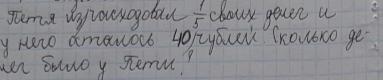 Петя израсходовал 1/5 своих денег и
у него осталось 40 рублей Сколько де-
нег было у Пети?